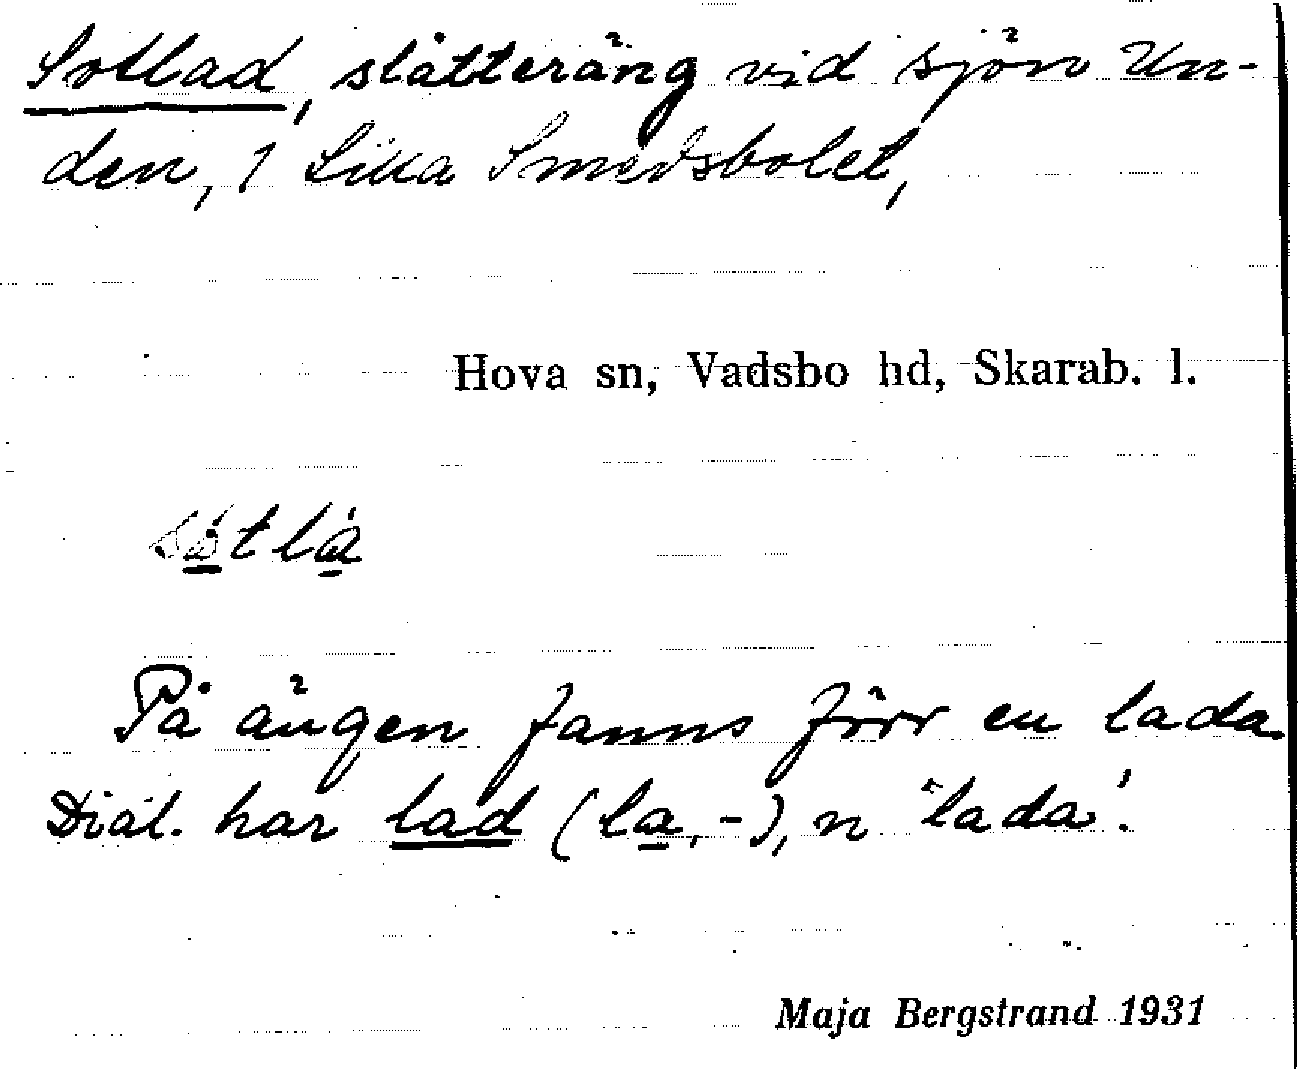 Sotlad, slåtteräng vid sjön Un-
den, 1 Lilla Smedsbolet,
Hova sn, Vadsbo hd, Skarab. l.
såtla
På ängen fanns förr en lada.
Dial. har lad (la, -), n 'lada'.
Maja Bergstrand 1931